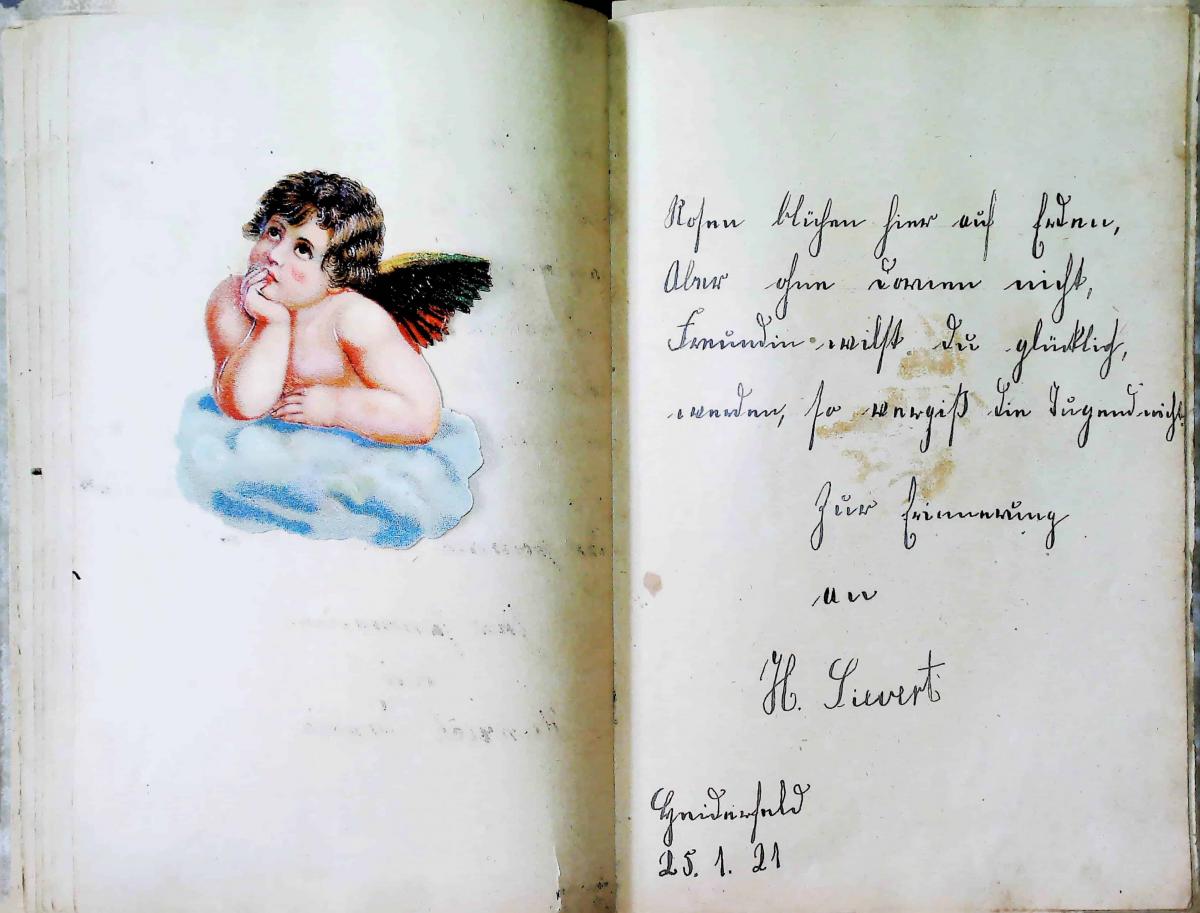 Rosen blühen hier auf Erden,
Aber ohne Dornen nicht,
Freundin wilst du glücklich,
werden, so vergiß die Tugend nicht
Zur Erinnerung
an
H. Sievert
Heiderfeld
25. 1. 21